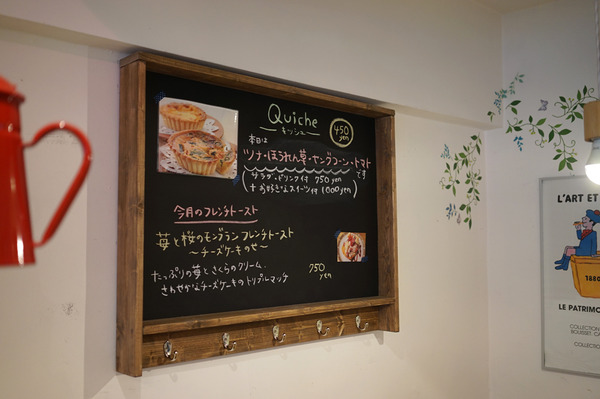 Quiche
－キッシュ－
450 yen
本日は
ツナ・ほうれん草・ヤングコーン・トマト
です
(サラダ・ドリンク付 750yen
＋お好きなスイーツ付 1000yen)
今月のフレンチトースト
苺と桜のモンブランフレンチトースト
〜チーズケーキのせ〜
たっぷりの苺とさくらのクリーム
さわやかなチーズケーキのトリプルマッチ
750 yen
L'ART ET
1880
LE PATRIMO
COLLECTION
BOUISSET, CA
COLLECTIO